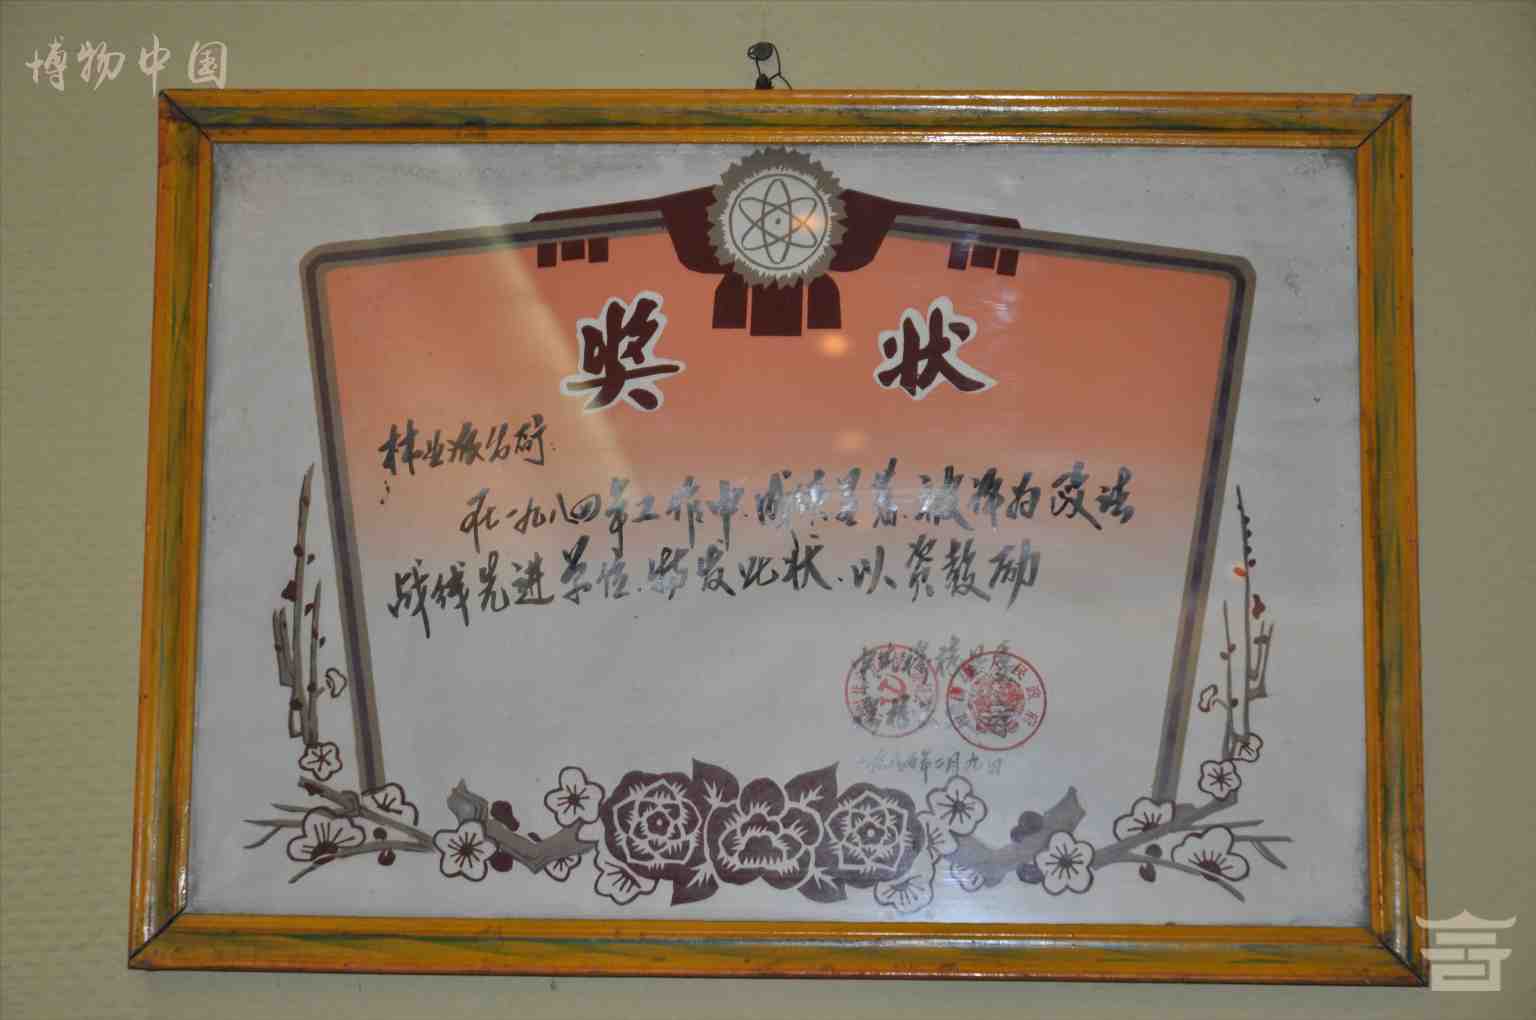 博物中国
奖状
林业派出所:
在一九八四年工作中,成绩显著,被评为政法
战线先进单位,特发此状,以资鼓励
中共 县委
一九八五年二月九日